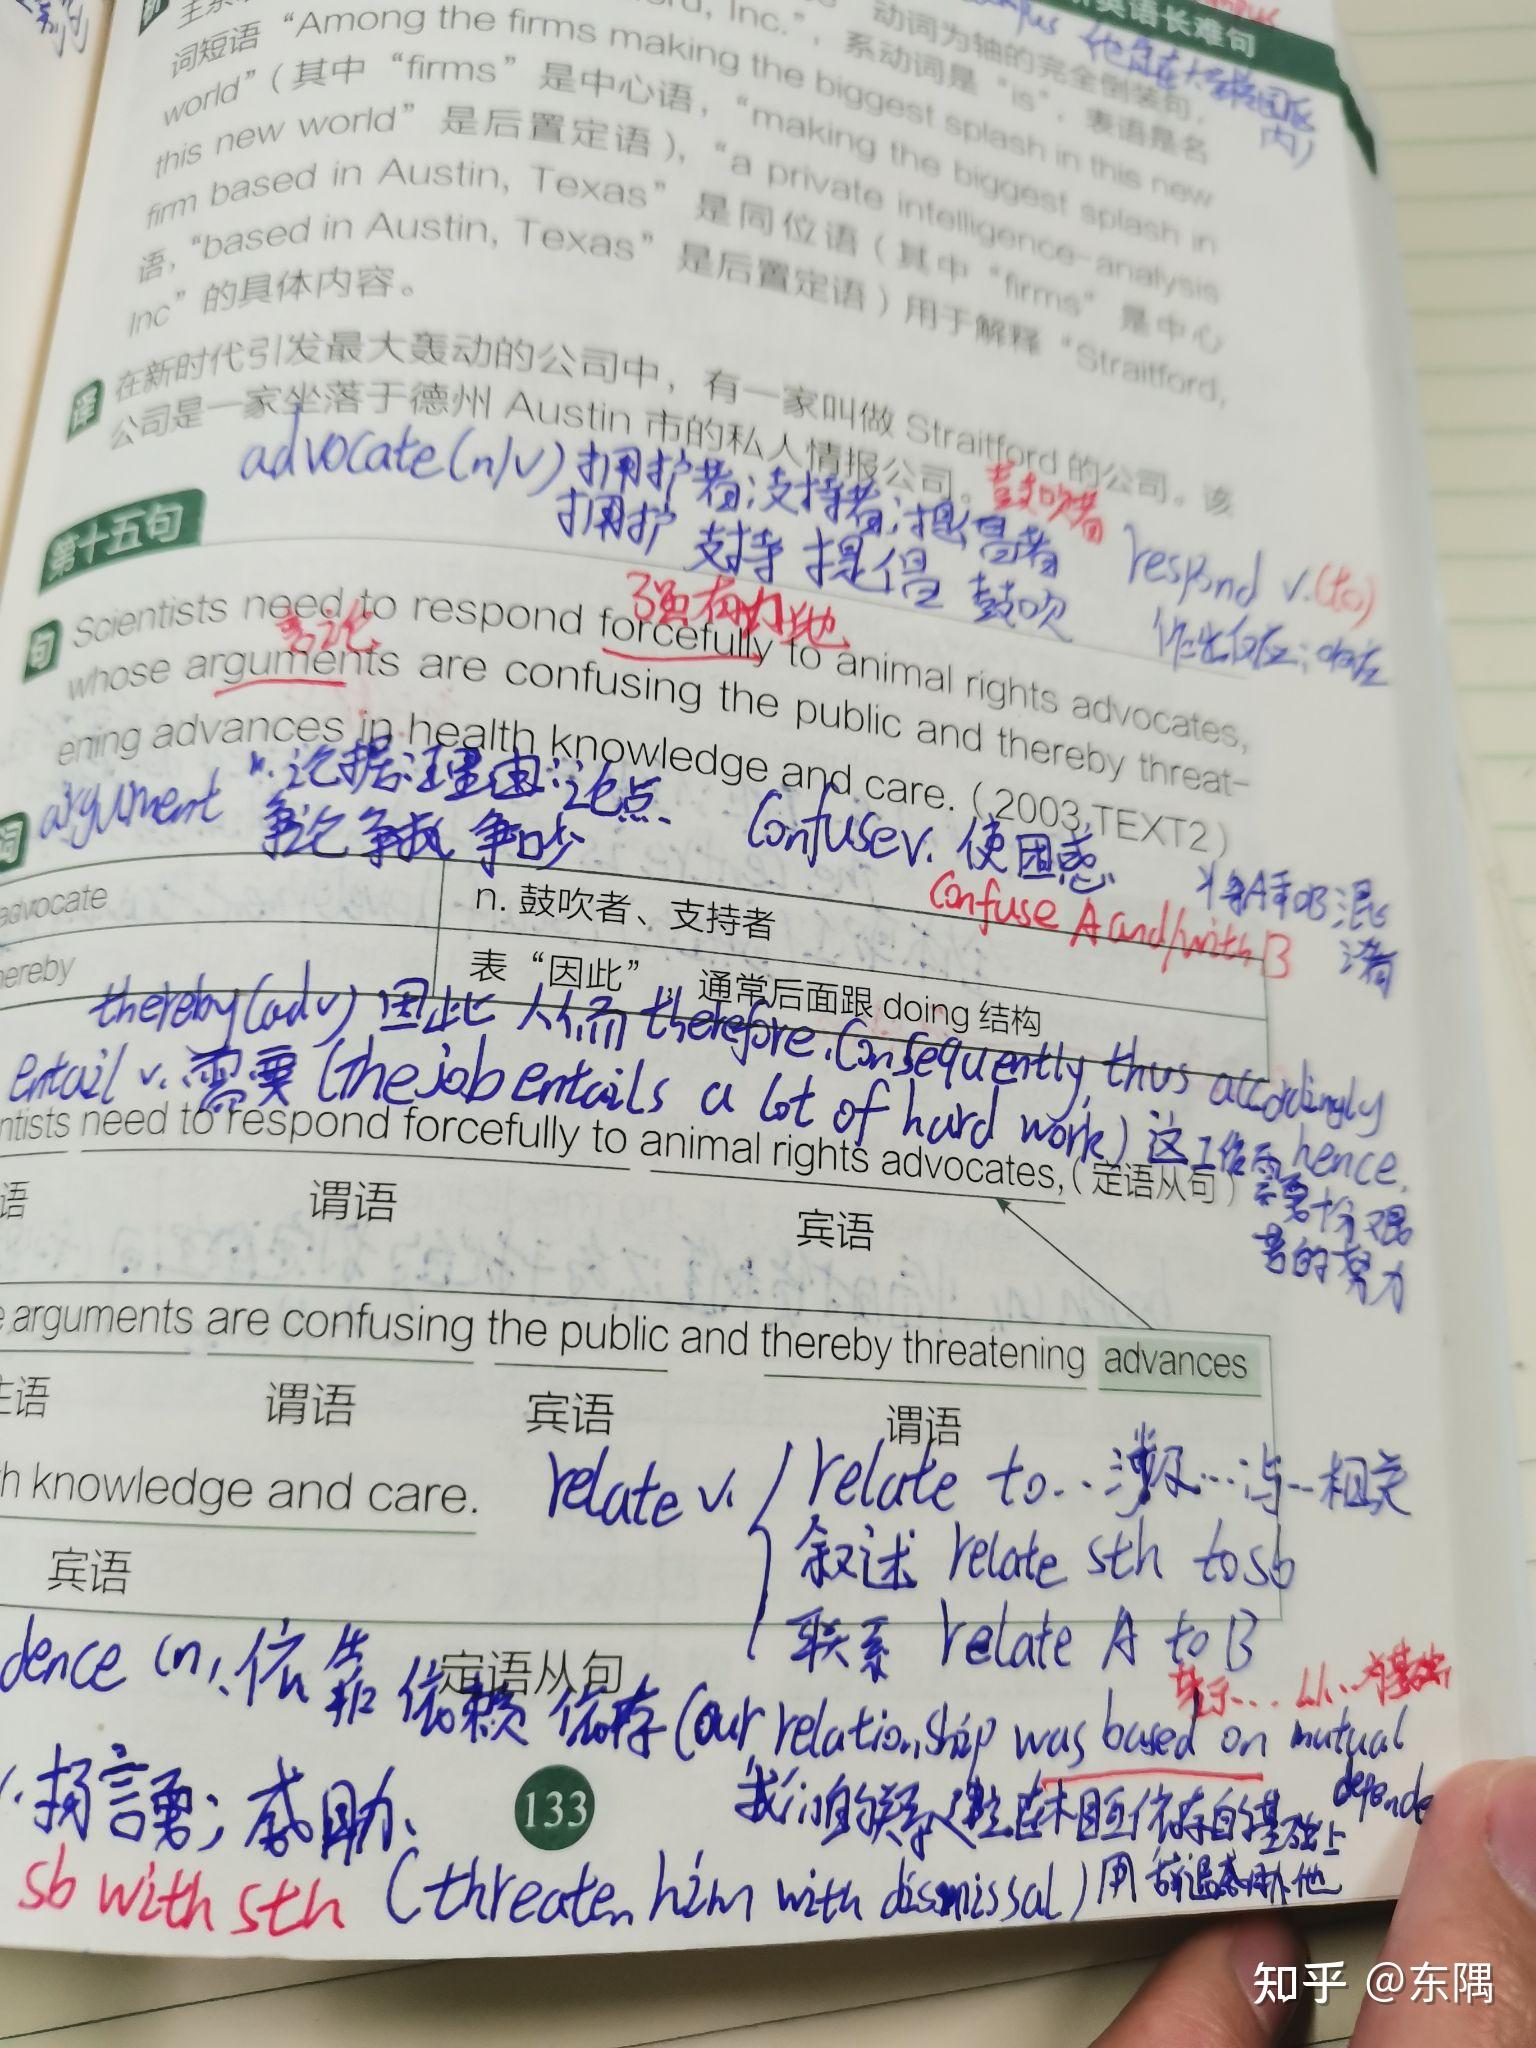 英语长难句
词短语“Among the firms making the biggest splash in this new
world”(其中“firms”是中心语，“making the biggest splash in
this new world”是后置定语)，“a private intelligence-analysis
firm based in Austin, Texas”是同位语(其中“firms”是中心
语，“based in Austin, Texas”是后置定语)用于解释“Straitford,
Inc”的具体内容。
译 在新时代引发最大轰动的公司中，有一家叫做 Straitford 的公司。该
公司是一家坐落于德州 Austin 市的私人情报公司。
advocate(n/v) 拥护者;支持者;提倡者 鼓吹者
拥护 支持 提倡 鼓吹
respond v.(to)
作出反应;响应
第十五句
强有力地
句 Scientists need to respond forcefully to animal rights advocates,
言论
whose arguments are confusing the public and thereby threat-
ening advances in health knowledge and care. (2003,TEXT2)
argument n.论据;理由;论点
争论 争执 争吵
confuse v. 使困惑
confuse A and/with B
将A和B混淆
词
advocate n. 鼓吹者、支持者
hereby 表“因此” 通常后面跟 doing 结构
thereby(adv) 因此 从而 therefore, consequently, thus accordingly
hence,
entail v. 需要 (the job entails a lot of hard work) 这工作需要十分艰苦的努力
ntists need to respond forcefully to animal rights advocates,(定语从句)
语 谓语 宾语
e arguments are confusing the public and thereby threatening advances
主语 谓语 宾语 谓语
h knowledge and care.
宾语
relate v.
relate to... 涉及...;与...相关
叙述 relate sth to sb
联系 relate A to B
定语从句
dence (n). 依靠 依赖 依存 (our relationship was based on mutual
depende
基于... 以...为基础
我们的关系建立在相互依存的基础上
威胁.
133
sb with sth (threaten him with dismissal) 用辞退威胁他
知乎 @东隅